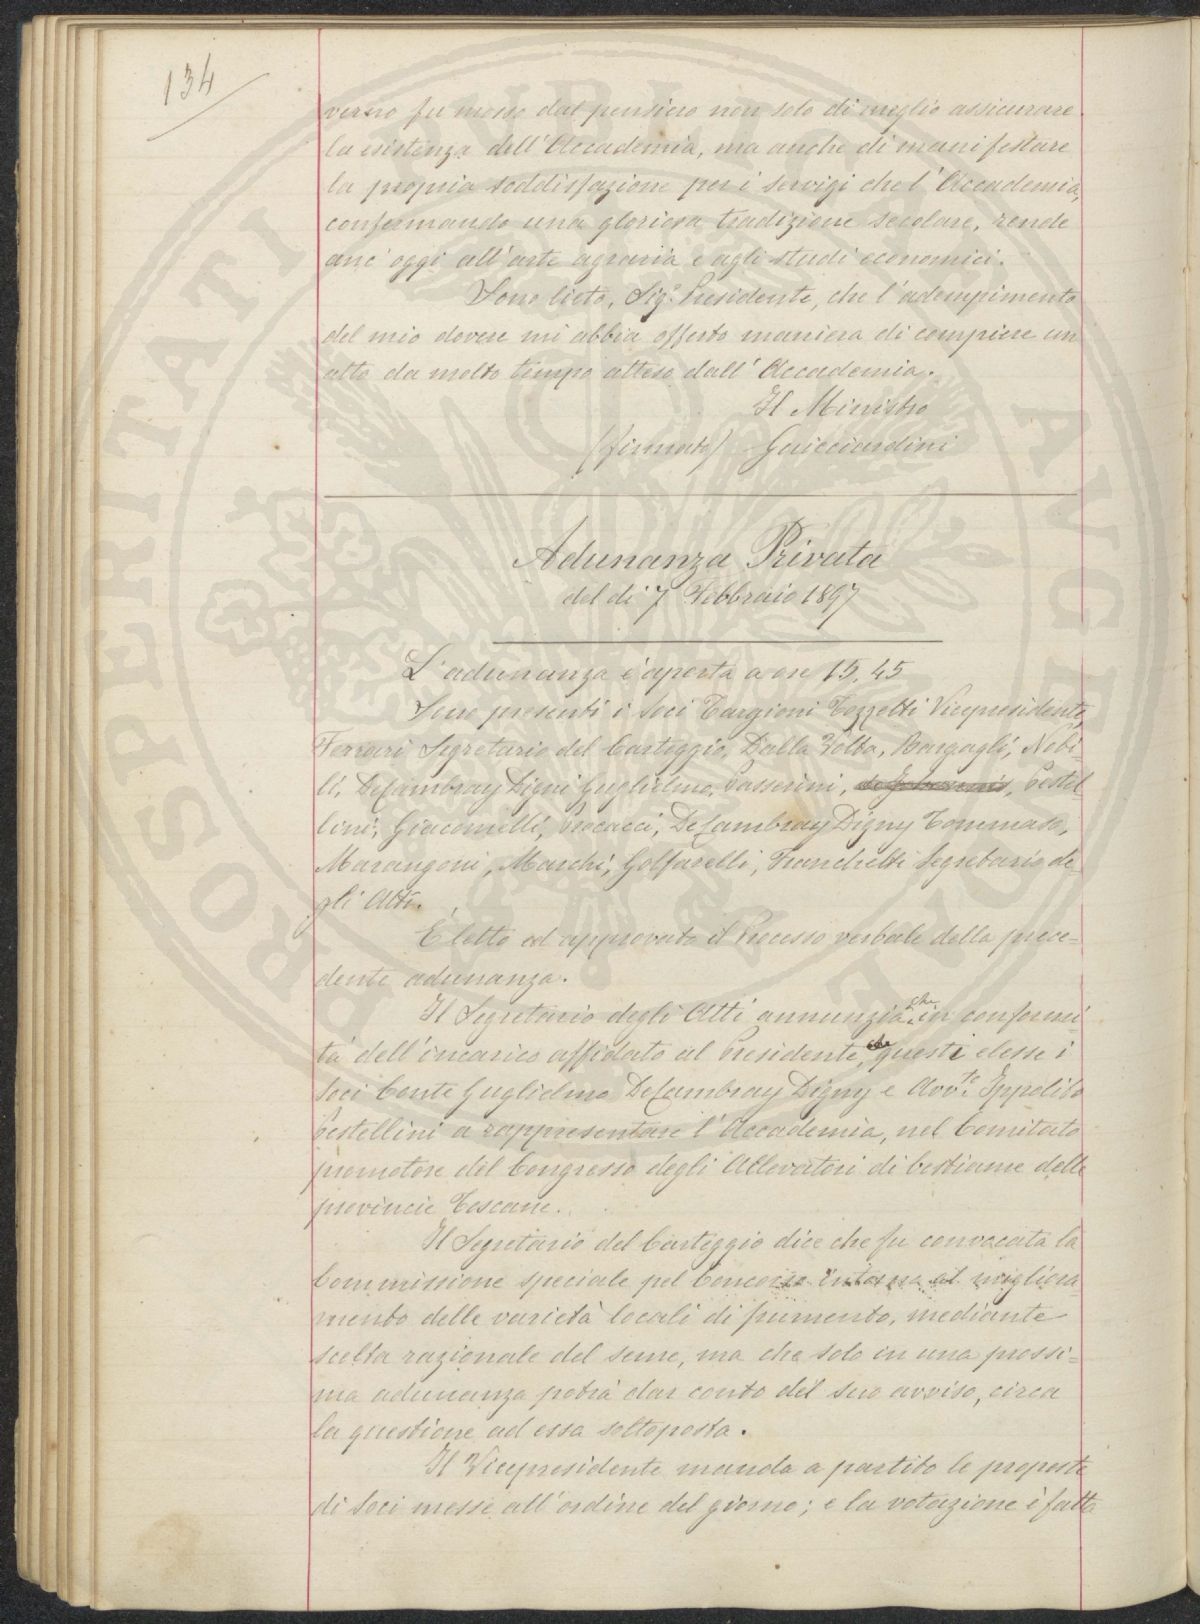 134
verno fu mosso dal pensiero non solo di meglio assicurare
la esistenza dell'Accademia, ma anche di manifestare
la propria soddisfazione per i servigi che l'Accademia,
confermando una gloriosa tradizione secolare, rende
anc'oggi all'arte agraria e agli studi economici.
Sono lieto, Sigr. Presidente, che l'adempimento
del mio dovere mi abbia offerto maniera di compiere un
atto da molto tempo atteso dall'Accademia.
Il Ministro
(firmato) Guicciardini
Adunanza Privata
del dì 7 Febbraio 1897
L'adunanza è aperta a ore 15,45
Sono presenti i Soci Targioni Tozzetti Vicepresidente,
Ferrari Segretario del Carteggio, Dalla Volta, Bargagli, Nobi-
li, De Cambray Digni Guglielmo, Passerini, Pestel-
lini, Giacomelli, Procacci, De Cambray Digny Tommaso,
Marangoni, Marchi, Golfarelli, Franchetti Segretario de-
gli Atti.
È letto ed approvato il Processo verbale della prece-
dente adunanza.
Il Segretario degli Atti annunzia che in conformi-
tà dell'incarico affidato al Presidente, questi elesse i
Soci Conte Guglielmo De Cambray Digny e Avv.to Ippolito
Pestellini a rappresentare l'Accademia, nel Comitato
promotore del Congresso degli Allevatori di bestiame delle
provincie Toscane.
Il Segretario del Carteggio dice che fu convocata la
Commissione speciale pel Concorso intorno al migliora-
mento delle varietà locali di frumento, mediante
scelta razionale del seme, ma che solo in una prossi-
ma adunanza potrà dar conto del suo avviso, circa
la questione ad essa sottoposta.
Il Vicepresidente manda a partito le proposte
di Soci messe all'ordine del giorno; e la votazione è fatta
PROSPERITATI PVBLICAE AVGENDAE